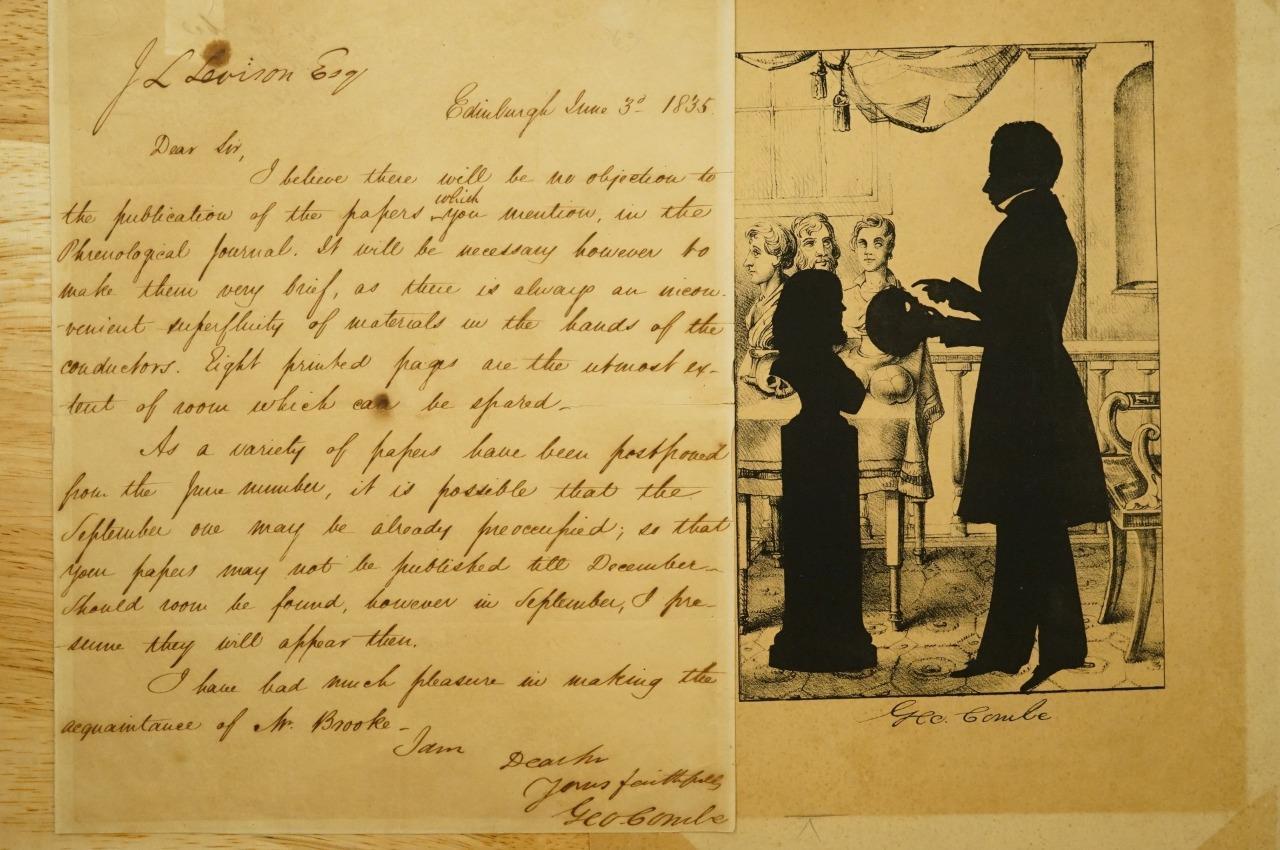 J L Levison Esq
Edinburgh June 3d 1835.
Dear Sir,
I believe there will be no objection to
the publication of the papers which you mention, in the
Phrenological Journal. It will be necessary however to
make them very brief, as there is always an incon-
venient superfluity of materials in the hands of the
conductors. Eight printed pages are the utmost ex-
tent of room which can be spared_
As a variety of papers have been postponed
from the June number, it is possible that the
September one may be already preoccupied; so that
your papers may not be published till December_
Should room be found, however in September, I pre-
sume they will appear then.
I have had much pleasure in making the
acquaintance of Mr. Brooke_
I am
Dear Sir
Yours faithfully
Geo Combe
Geo. Combe